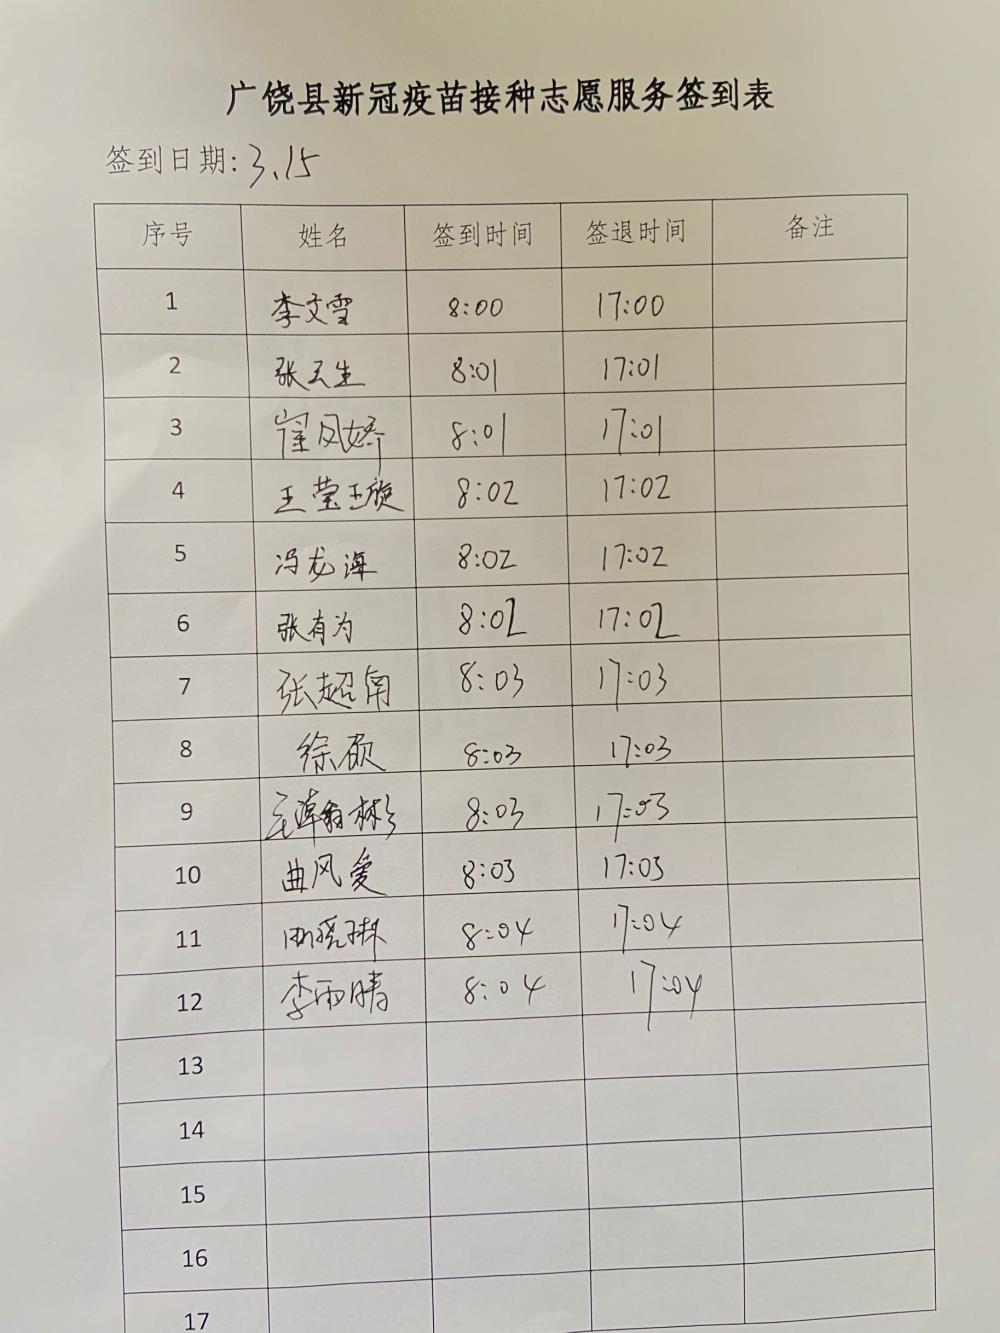 广饶县新冠疫苗接种志愿服务签到表
签到日期: 3.15
序号 姓名 签到时间 签退时间 备注
1 李文雪 8:00 17:00
2 张玉生 8:01 17:01
3 崔凤娇 8:01 17:01
4 王莹王旋 8:02 17:02
5 冯龙海 8:02 17:02
6 张有为 8:02 17:02
7 张超南 8:03 17:03
8 徐硕 8:03 17:03
9 8:03 17:03
10 曲风爱 8:03 17:03
11 8:04 17:04
12 李雨晴 8:04 17:04
13
14
15
16
17